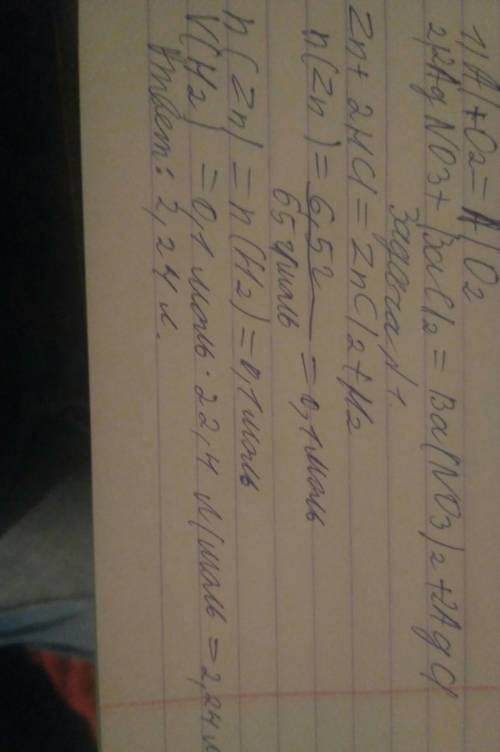 1) Al + O2 = AlO2
2) 2AgNO3 + BaCl2 = Ba(NO3)2 + 2AgCl
Задача №1.
Zn + 2HCl = ZnCl2 + H2
n(Zn) = 6,5г / 65г/моль = 0,1моль
n(Zn) = n(H2) = 0,1моль
V(H2) = 0,1моль · 22,4 л/моль = 2,24 л
Ответ: 2,24 л.